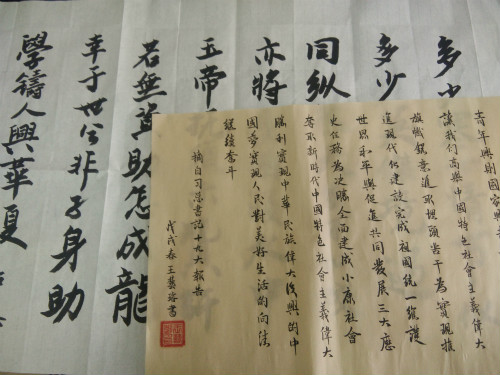 多少
多少
同纵
亦將
五帝
若無資助怎成龍
幸于世公非子身助
學鑄人興華夏
青年興則國家
讓我們高舉中國特色社會主義偉大
旗幟銳意進取埋頭苦干為實現推
進現代化建設完成祖國統一維護
世界和平與促進共同發展三大歷
史任務為決勝全面建成小康社會
奪取新時代中國特色社會主義偉大
勝利實現中華民族偉大復興的中
國夢實現人民對美好生活的向往
繼續奮斗
摘自习总書記十九大報告
戊戌春王藝書